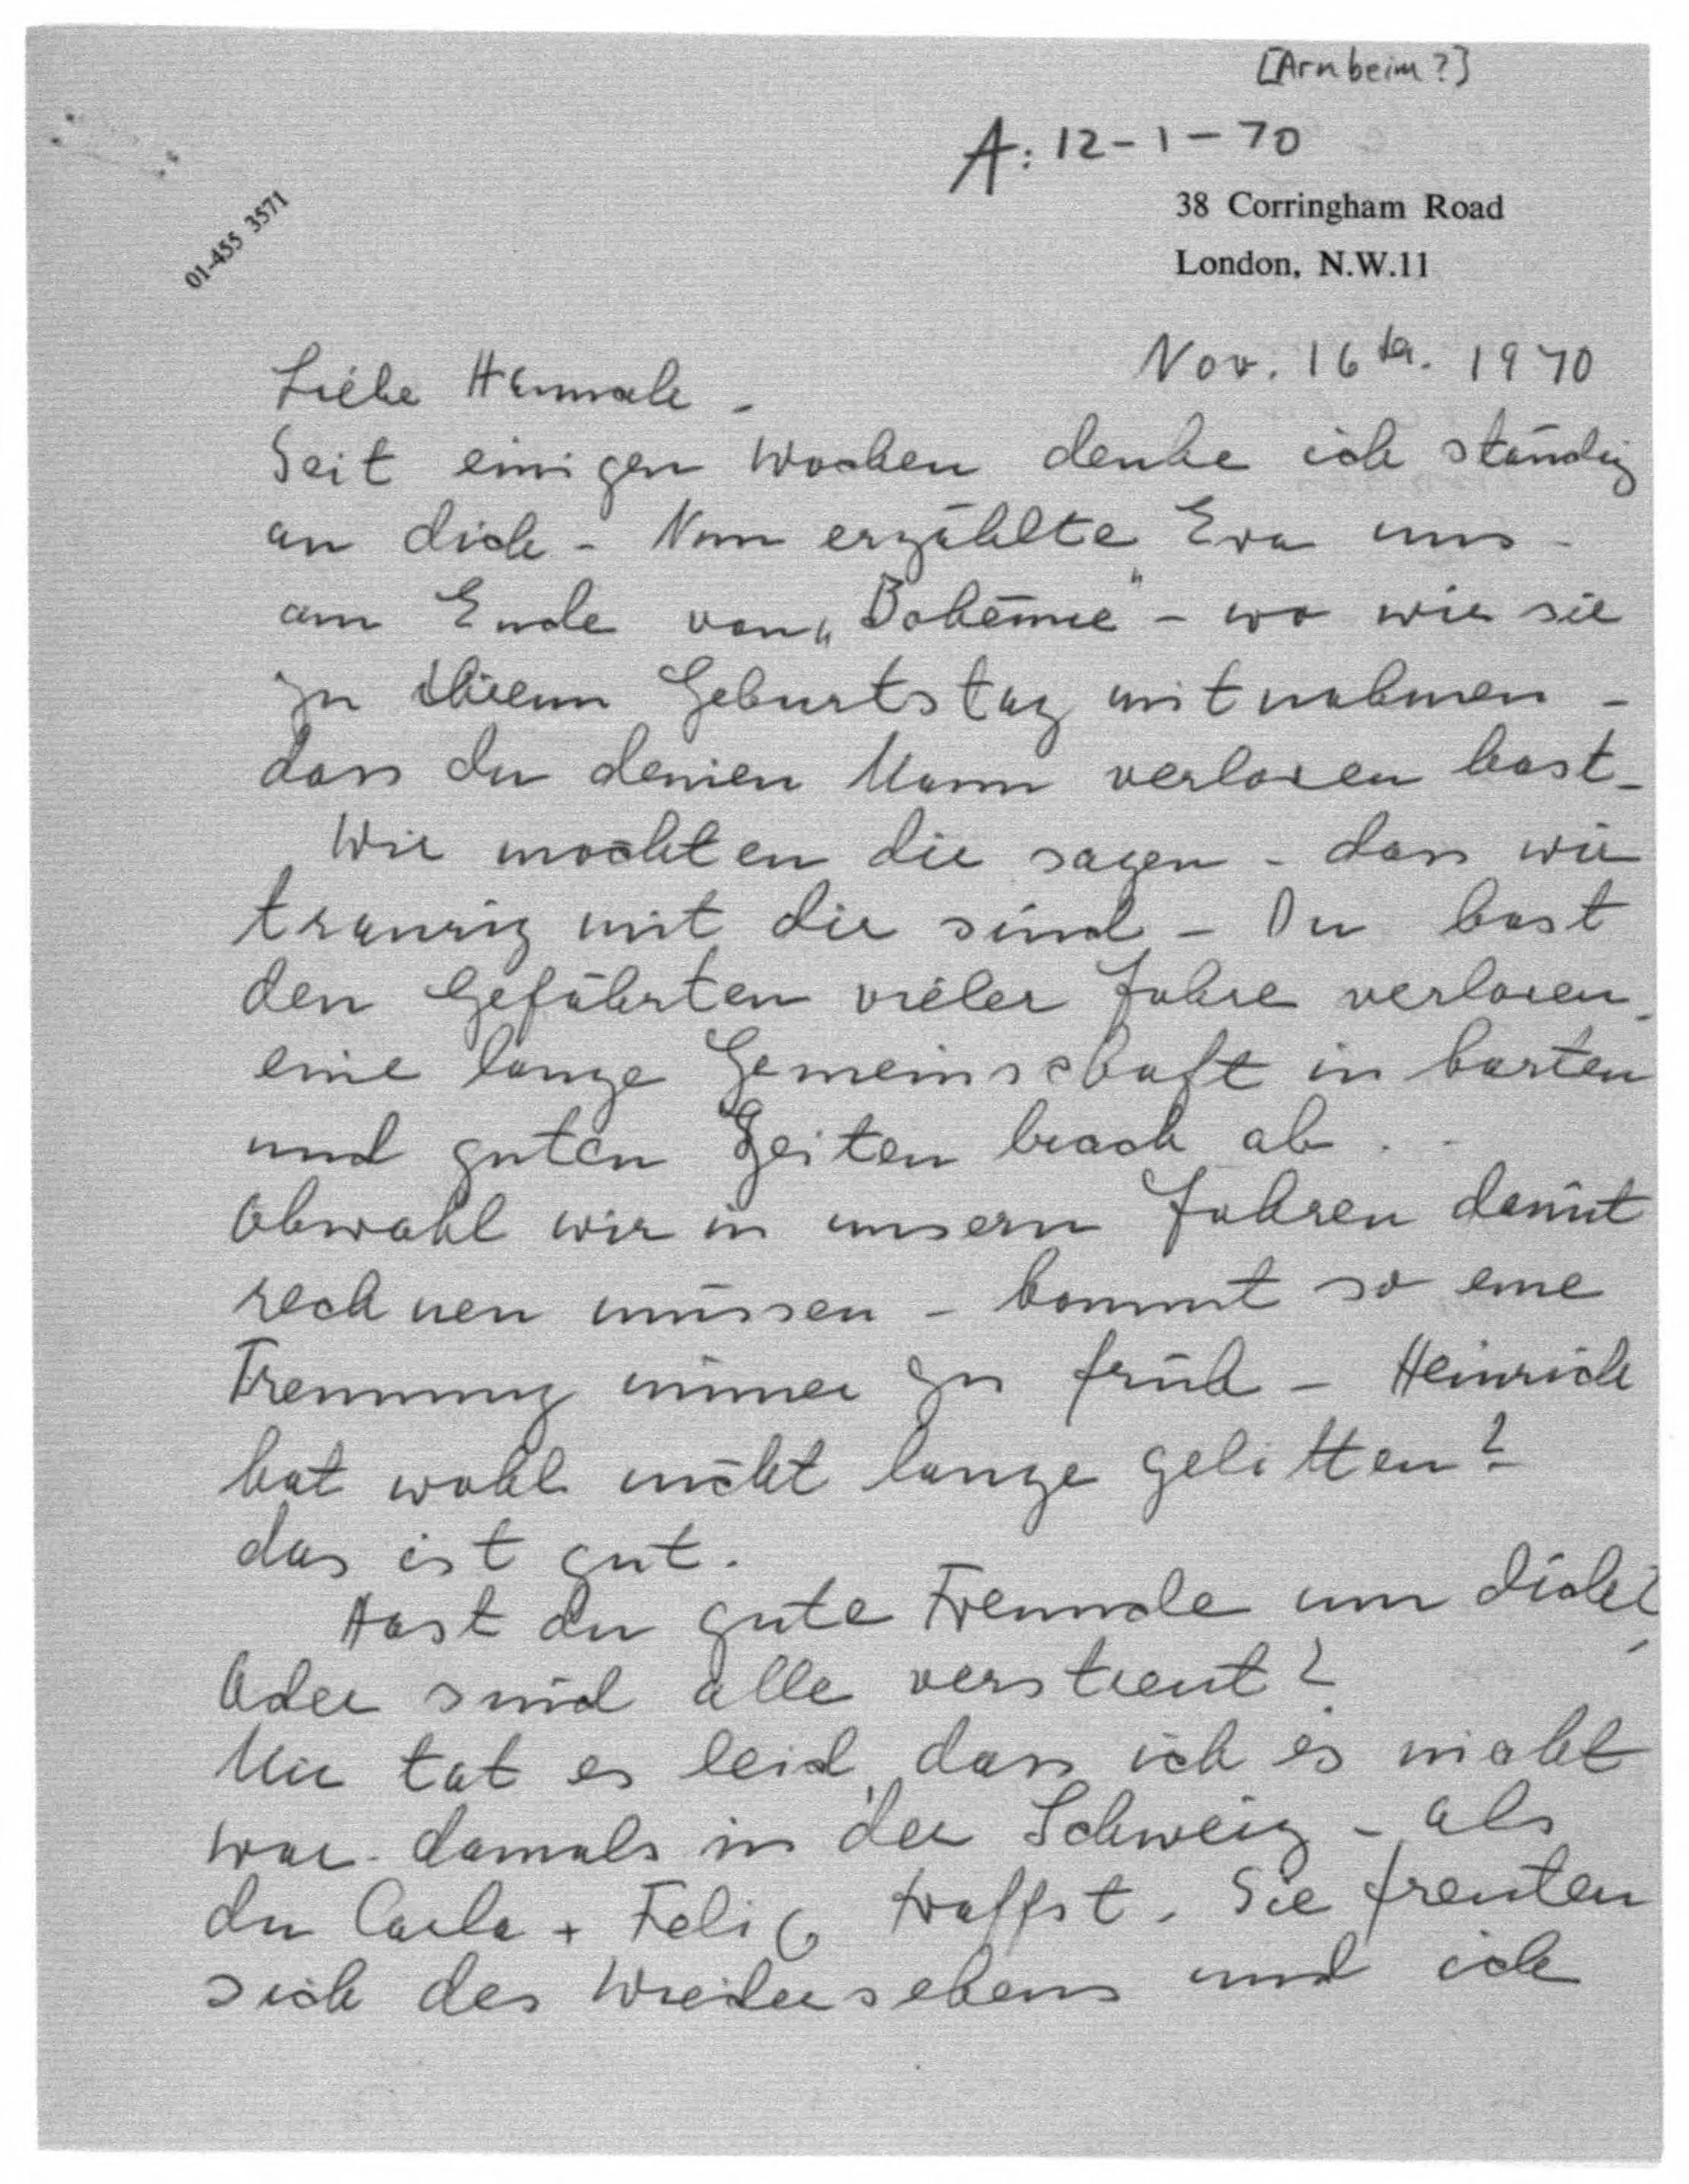 [Arnheim?]
A: 12-1-70
01-455 3571
38 Corringham Road
London, N.W.11
Nov. 16th. 1970
Liebe Hannah -
Seit einigen Wochen denke ich ständig
an dich - Nun erzählte Eva uns -
am Ende von „Bohème" - wo wir sie
zu ihrem Geburtstag mitnahmen -
dass du deinen Mann verloren hast -
Wir möchten dir sagen - dass wir
traurig mit dir sind - Du hast
den Gefährten vieler Jahre verloren -
eine lange Gemeinschaft in harten
und guten Zeiten brach ab . -
Obwohl wir in unsern Jahren damit
rechnen müssen - kommt so eine
Trennung immer zu früh - Heinrich
hat wohl nicht lange gelitten?
das ist gut.
Hast du gute Freunde um dich?
Oder sind alle verstreut?
Mir tat es leid, dass ich es nicht
war - damals in der Schweiz - als
du Carla + Felix traffst. Sie freuten
sich des Wiedersehens und ich